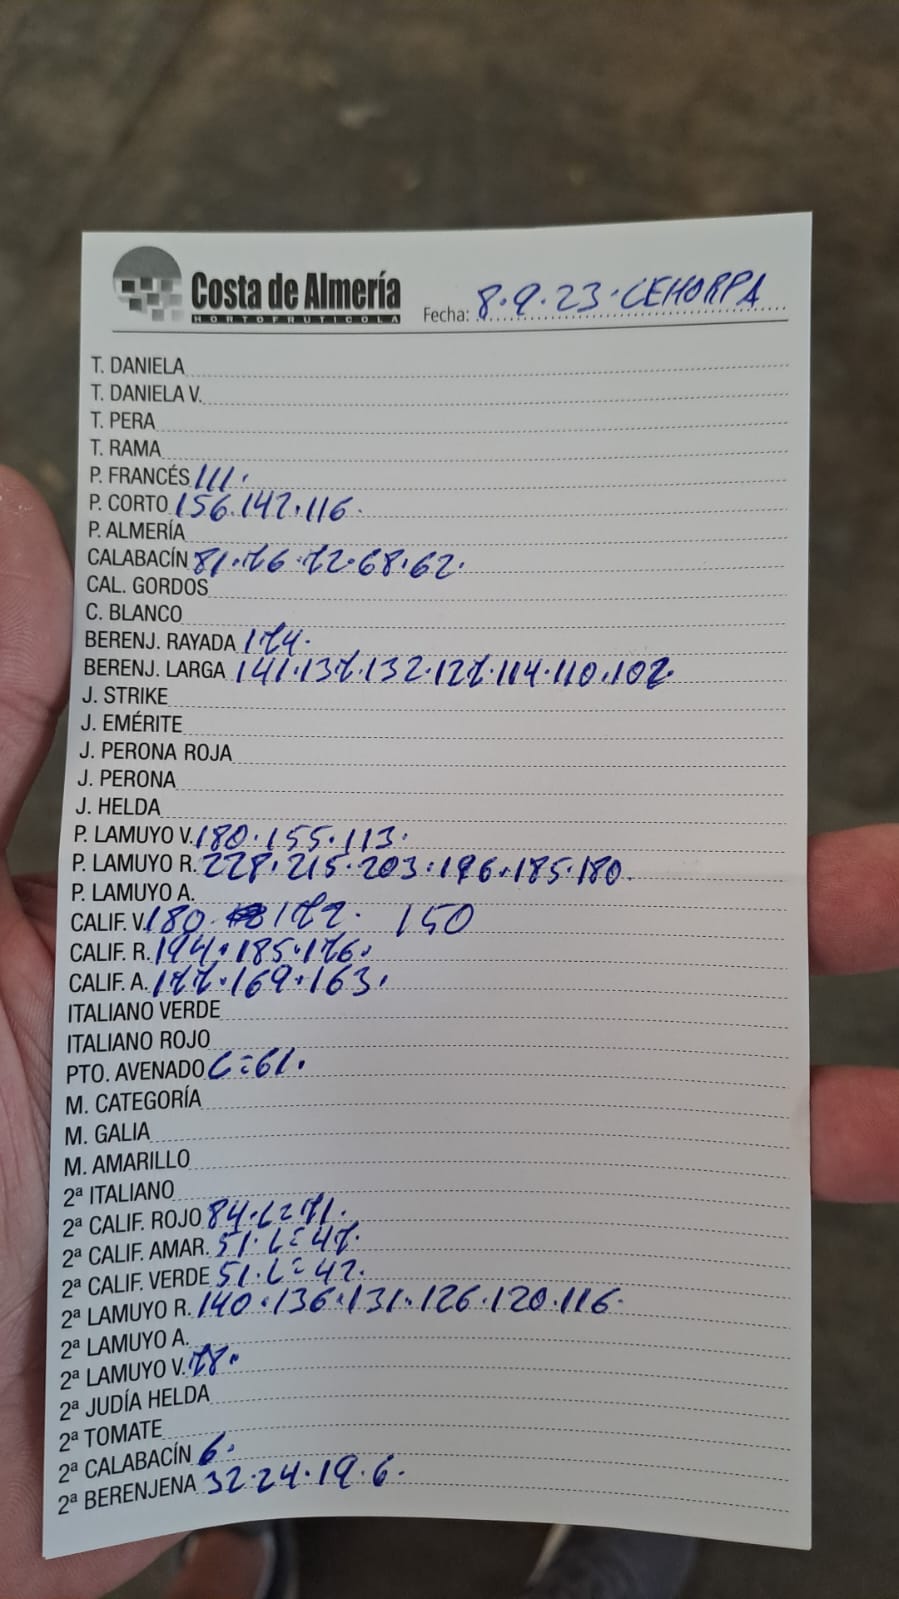 Costa de Almería
HORTOFRUTICOLA
Fecha: 8.9.23. CEHORPA
T. DANIELA
T. DANIELA V.
T. PERA
T. RAMA
P. FRANCÉS 111.
P. CORTO 156.142.116.
P. ALMERÍA
CALABACÍN 81.76.72.68.62.
CAL. GORDOS
C. BLANCO
BERENJ. RAYADA 174.
BERENJ. LARGA 141.137.132.127.114.110.102.
J. STRIKE
J. EMÉRITE
J. PERONA ROJA
J. PERONA
J. HELDA
P. LAMUYO V. 180.155.113.
P. LAMUYO R. 228.215.203.196.185.180.
P. LAMUYO A.
CALIF. V. 180. 172. 150
CALIF. R. 194.185.176.
CALIF. A. 177.169.163.
ITALIANO VERDE
ITALIANO ROJO
PTO. AVENADO C=61.
M. CATEGORÍA
M. GALIA
M. AMARILLO
2ª ITALIANO
2ª CALIF. ROJO 84.L=71.
2ª CALIF. AMAR. 51.L=47.
2ª CALIF. VERDE 51.L=42.
2ª LAMUYO R. 140.136.131.126.120.116.
2ª LAMUYO A.
2ª LAMUYO V. 78.
2ª JUDÍA HELDA
2ª TOMATE
2ª CALABACÍN 6.
2ª BERENJENA 32.24.19.6.